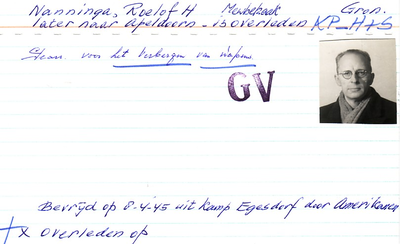 Nanninga, Roelof H. Gron.
later naar Apeldoorn - is overleden KP-H+S
voor het Verbergen van Wapens
GV
Bevrijd op 8-4-45 uit Kamp Egesdorf door Amerikanen
+x Overleden op